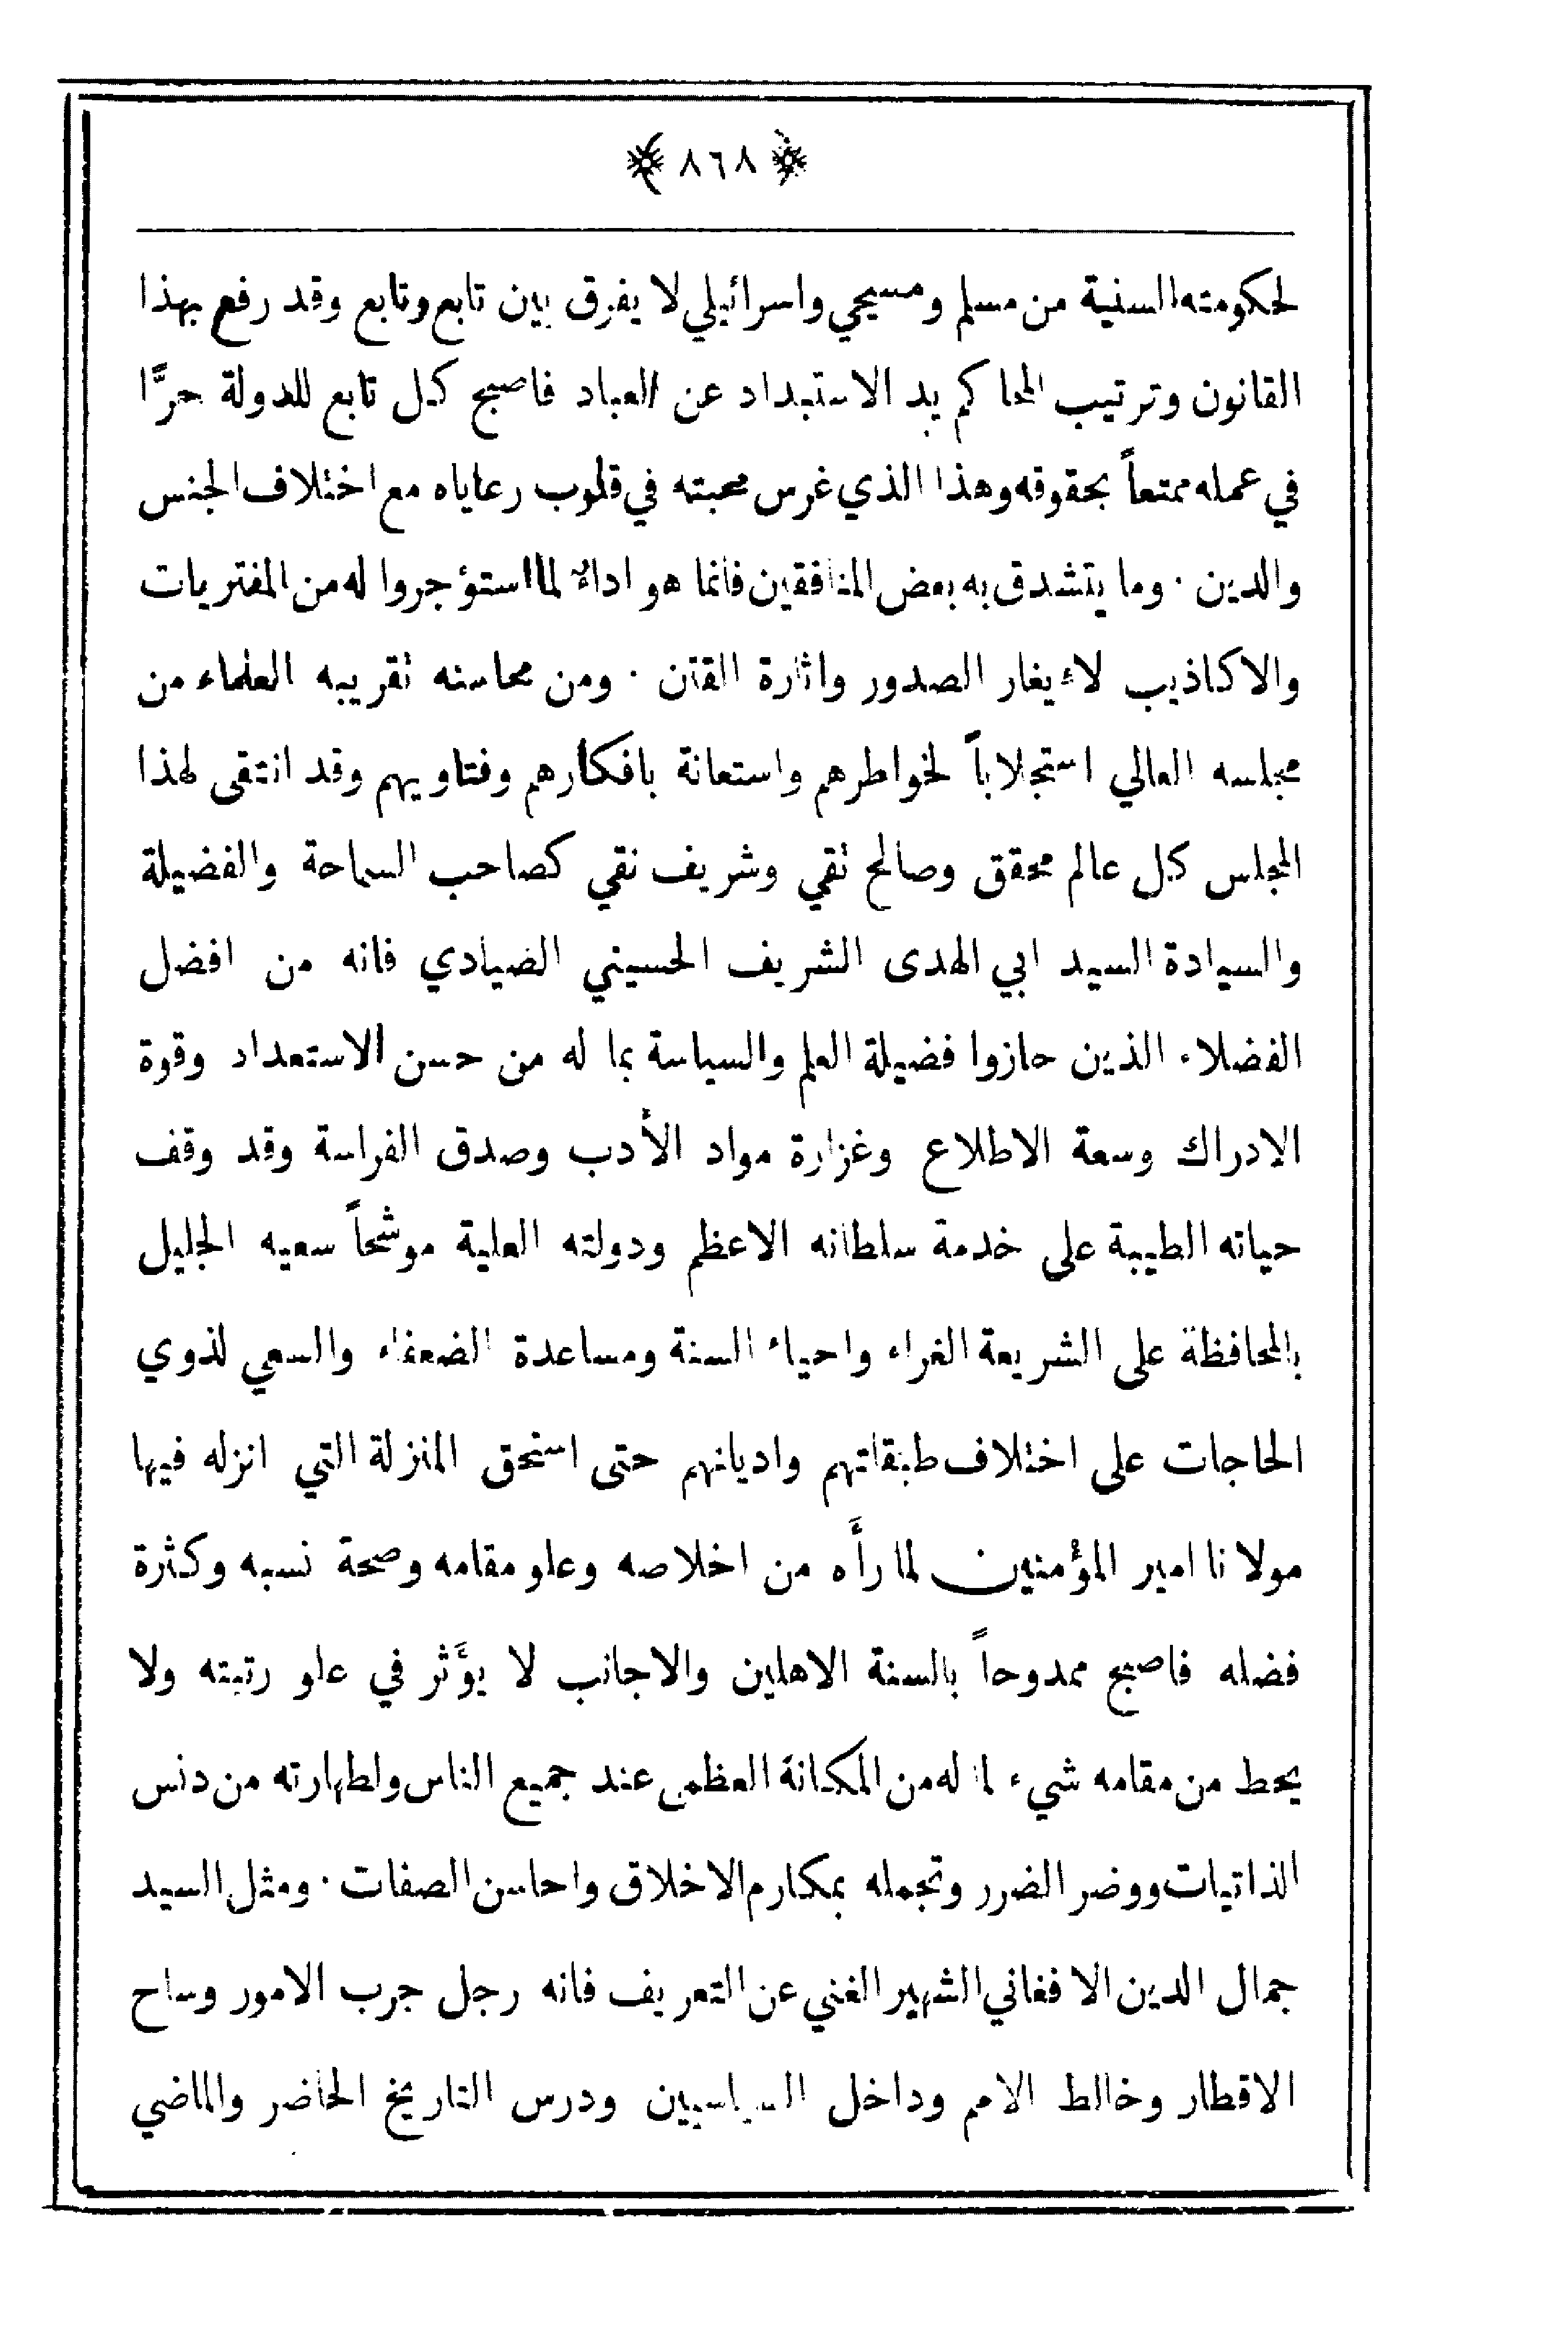 ﴿ ٨٦٨ ﴾
لحكومته السنية من مسلم ومسيحي واسرائيلي لا يفرق بين تابع وتابع وقد رفع بهذا
القانون وترتيب المحاكم يد الاستبداد عن العباد فاصبح كل تابع للدولة حرًّا
في عمله ممتعاً بحقوقه وهذا الذي غرس محبته في قلوب رعاياه مع اختلاف الجنس
والدين · وما يتشدق به بعض المنافقين فانما هو اداءٌ لما استؤجروا له من المفتريات
والاكاذيب لاءيغار الصدور واثارة الفتن · ومن محاسنه تقريبه العلماء من
مجلسه العالي استجلاباً لخواطرهم واستعانة بافكارهم وفتاويهم وقد انتقى لهذا
المجلس كل عالم محقق وصالح تقي وشريف نقي كصاحب السماحة والفضيلة
والسيادة السيد ابي الهدى الشريف الحسيني الضيادي فانه من افضل
الفضلاء الذين حازوا فضيلة العلم والسياسة بما له من حسن الاستعداد وقوة
الادراك وسعة الاطلاع وغزارة مواد الأدب وصدق الفراسة وقد وقف
حياته الطيبة على خدمة سلطانه الاعظم ودولته العلية موشحاً سعيه الجليل
بالمحافظة على الشريعة الغراء واحياء السنة ومساعدة الضعفاء والسعي لذوي
الحاجات على اختلاف طبقاتهم واديانهم حتى استحق المنزلة التي انزله فيها
مولانا امير المؤمنين لما رأَه من اخلاصه وعلو مقامه وصحة نسبه وكثرة
فضله فاصبح ممدوحاً بالسنة الاهلين والاجانب لا يؤَثر في علو رتبته ولا
يحط من مقامه شيء لما له من المكانة العظمى عند جميع الناس ولطهارته من دنس
الذاتيات ووضر الضرر وتجمله بمكارم الاخلاق واحاسن الصفات · ومثل السيد
جمال الدين الافغاني الشهير الغني عن التعريف فانه رجل جرب الامور وساح
الاقطار وخالط الامم وداخل السياسيين ودرس التاريخ الحاضر والماضي